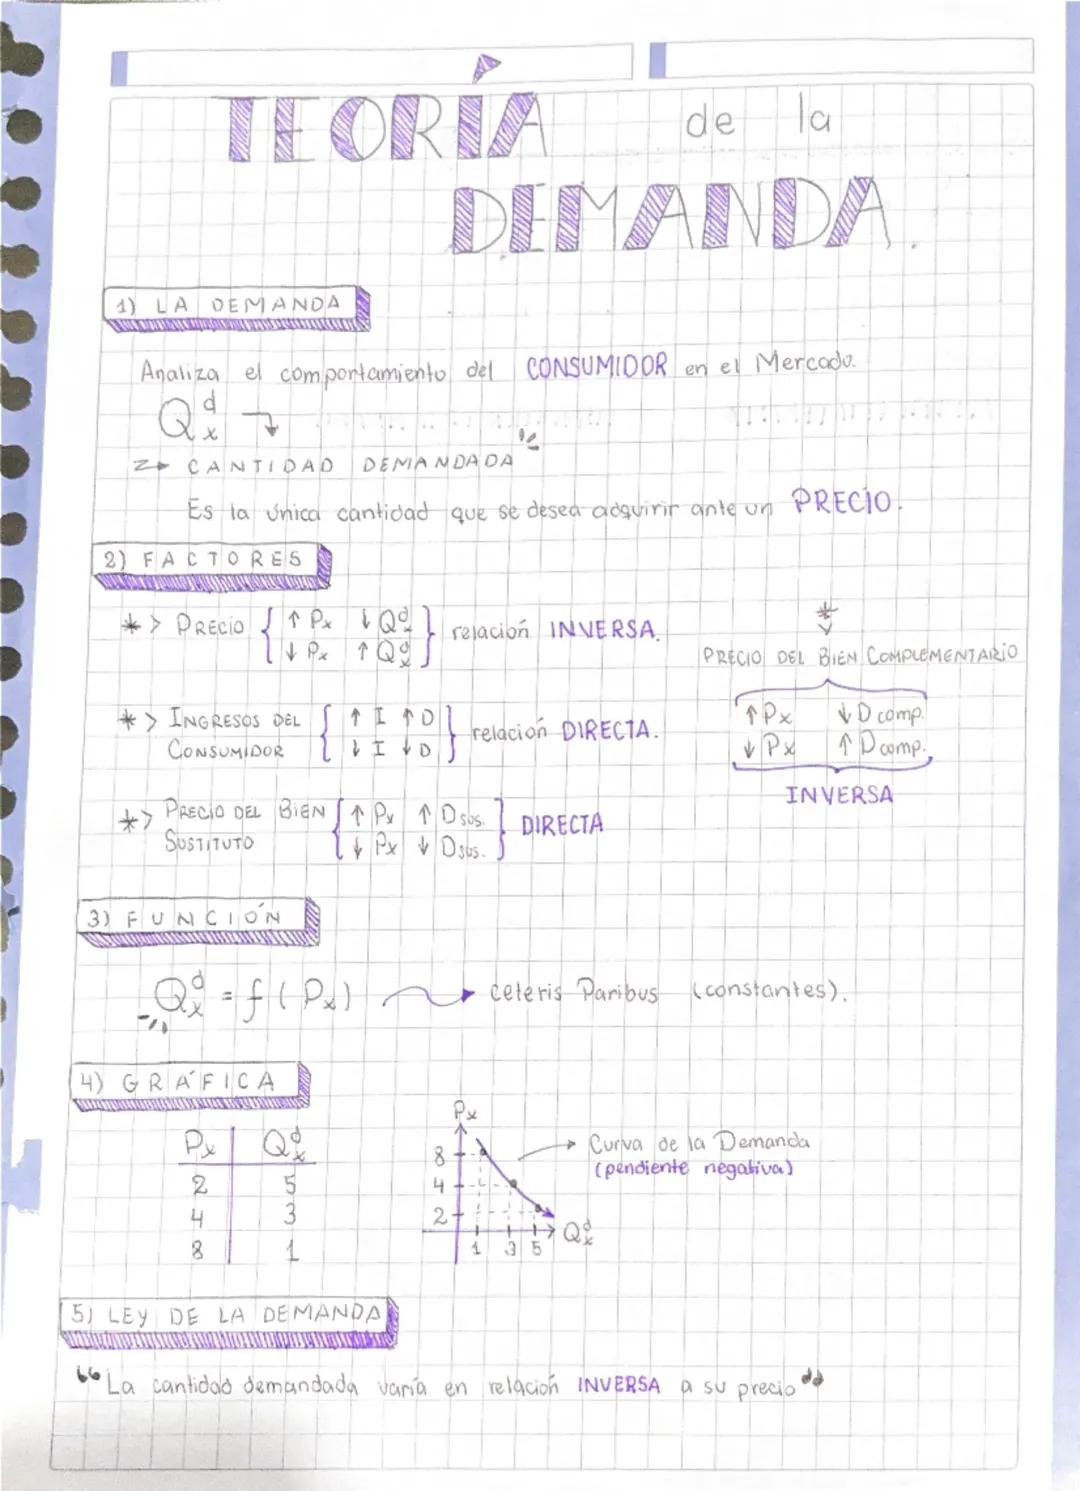 TEORÍA de la
DEMANDA.
1) LA DEMANDA
Analiza el comportamiento del CONSUMIDOR en el Mercado.
Qdx
CANTIDAD DEMANDADA
Es la única cantidad que se desea adquirir ante un PRECIO.
2) FACTORES
*> PRECIO { ↑ Px ↓ Qdx } relación INVERSA.
↓ Px ↑ Qdx
*> INGRESOS DEL { ↑ I ↑ D } relación DIRECTA.
CONSUMIDOR ↓ I ↓ D
*> PRECIO DEL BIEN { ↑ Px ↑ D sus. } DIRECTA
SUSTITUTO ↓ Px ↓ D sus.
*>
PRECIO DEL BIEN COMPLEMENTARIO
↑ Px ↓ D comp.
↓ Px ↑ D comp.
INVERSA
3) FUNCIÓN
Qdx = f (Px) → ceteris Paribus (constantes).
4) GRÁFICA
Px Qdx
2 5
4 3
8 1
Px
8
4
2
1 3 5
Qdx
Curva de la Demanda
(pendiente negativa)
5) LEY DE LA DEMANDA
“La cantidad demandada varía en relación INVERSA a su precio”